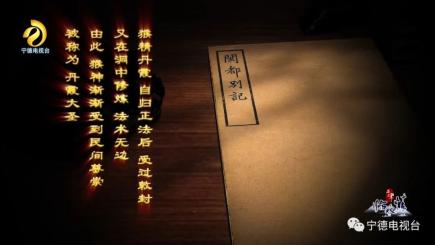 宁德电视台
猴精丹霞 自归正法后 受过敕封
又在洞中修炼 法术无边
由此 猴神渐渐受到民间尊崇
被称为 丹霞大圣
閩都別記
宁德电视台